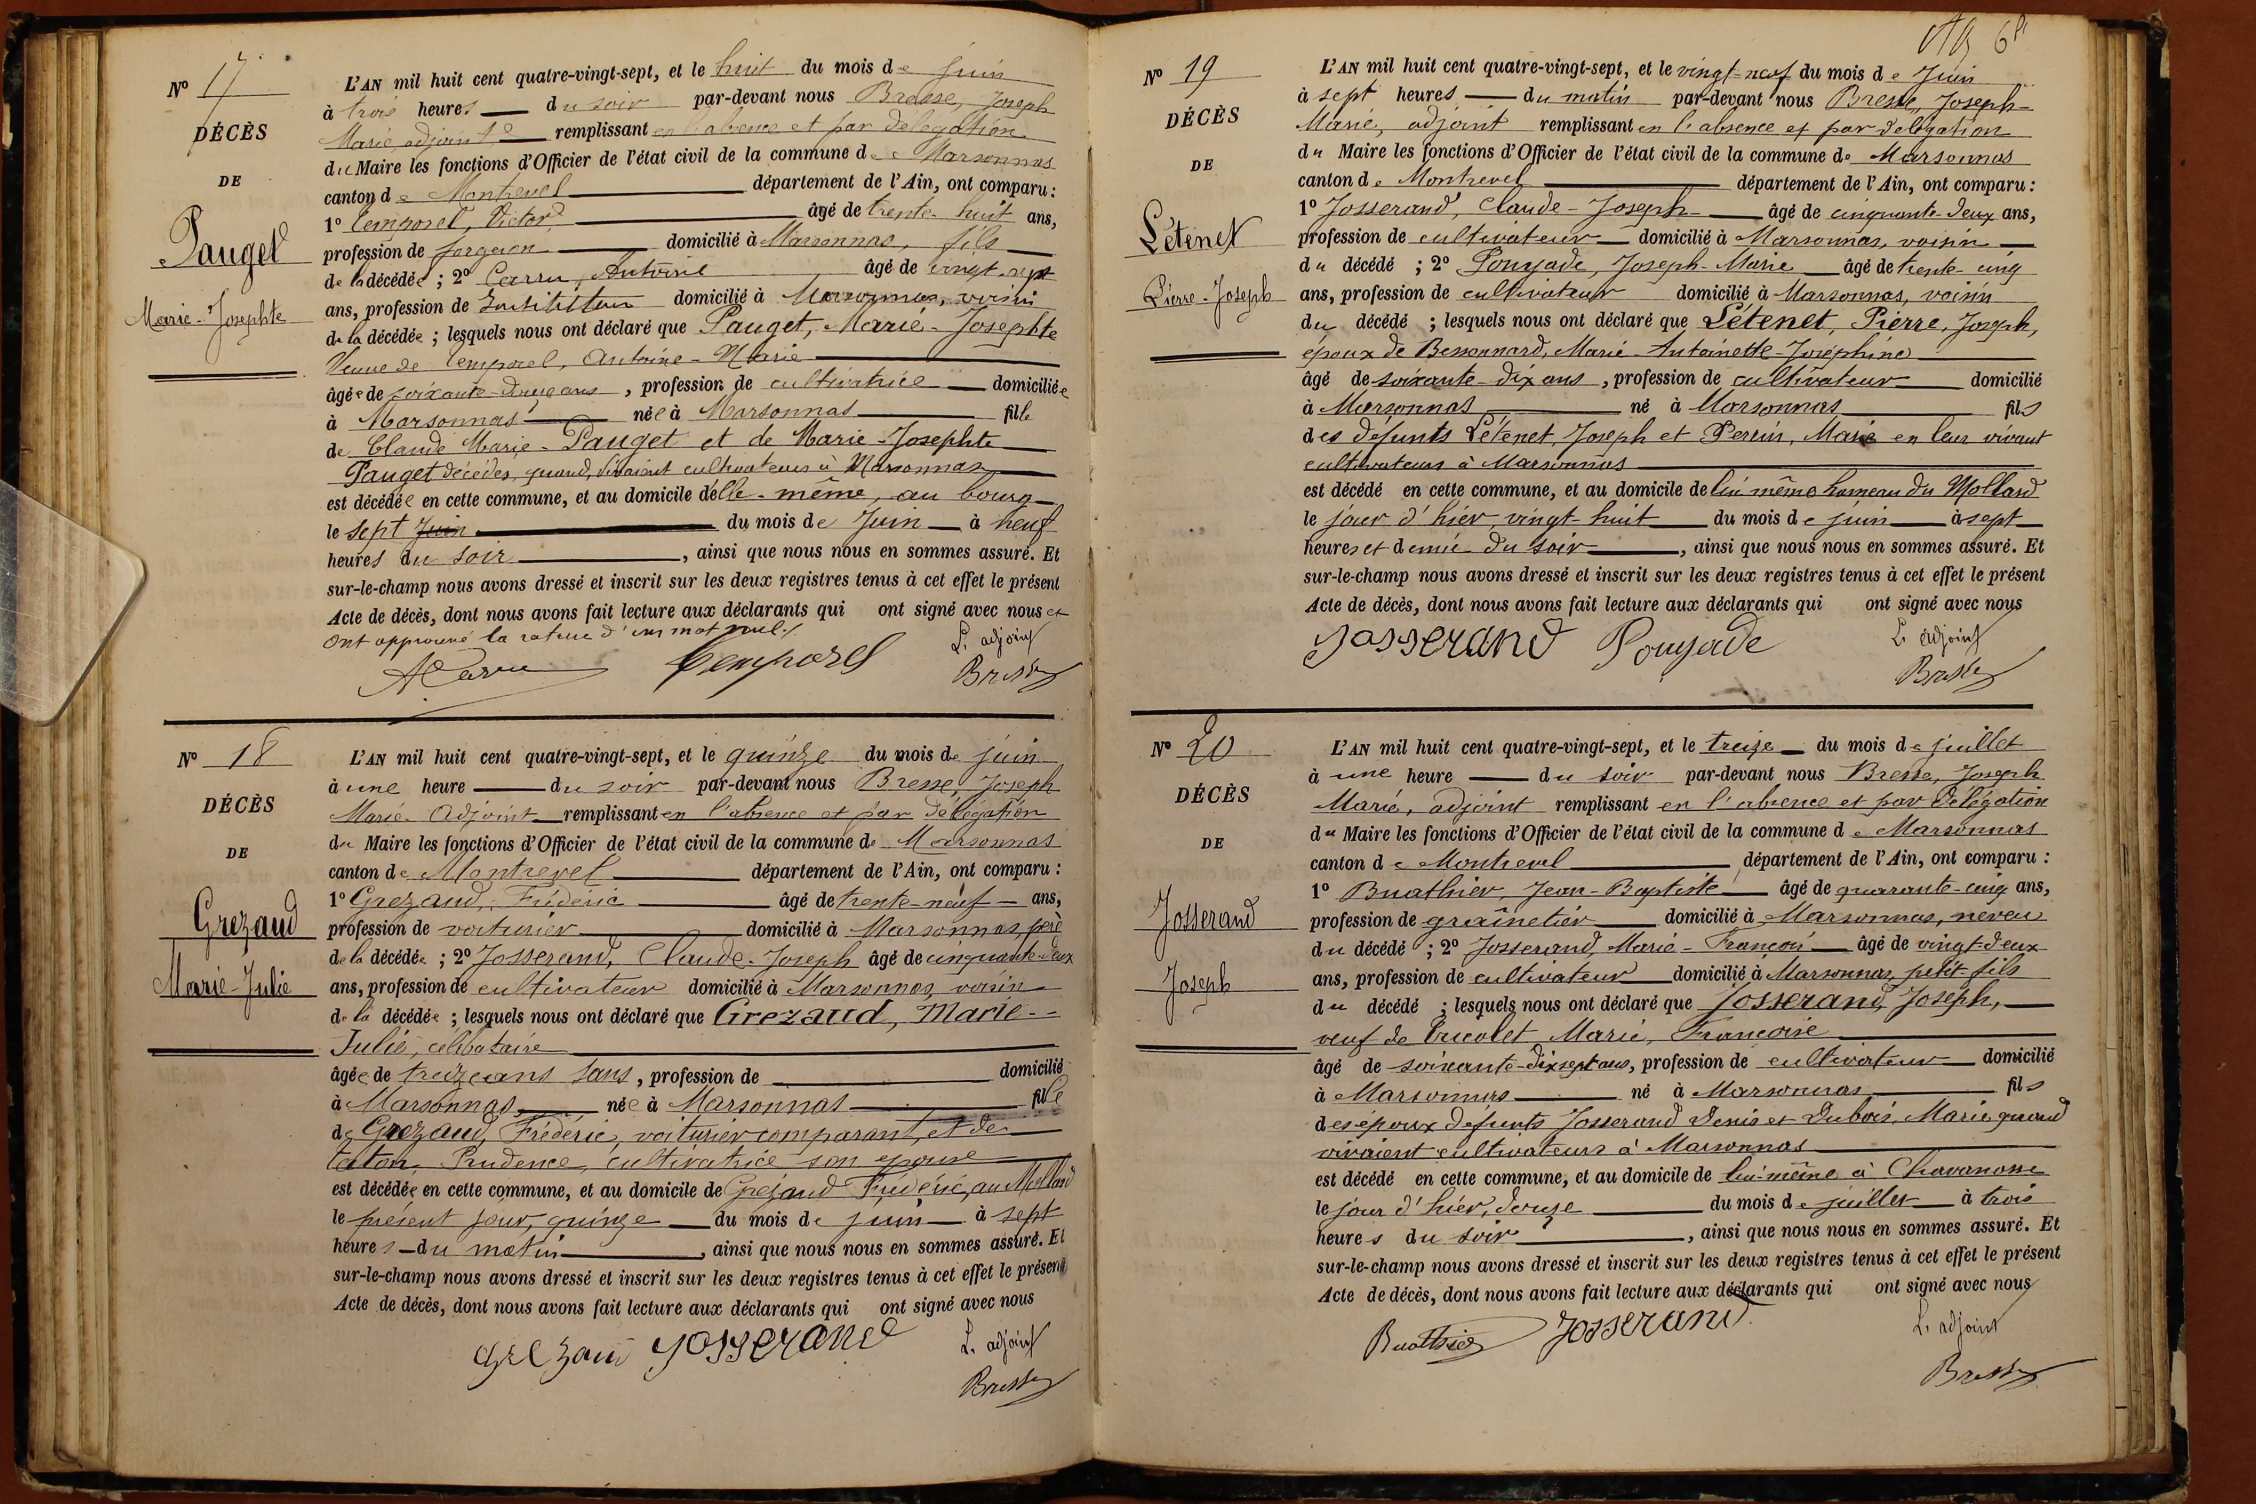 Nº 17
DÉCÈS
DE
Pauget
Marie-Josephte
L'AN mil huit cent quatre-vingt-sept, et le huit du mois de juin
à trois heures du soir par-devant nous Bresse, Joseph
Marie, adjoint remplissant en l'absence et par délégation
du Maire les fonctions d'Officier de l'état civil de la commune de Marsonnas
canton de Montrevel département de l'Ain, ont comparu :
1º Temporel, Victor âgé de trente-huit ans,
profession de forgeron domicilié à Marsonnas, fils
de la décédée ; 2º Carru, Antoine âgé de vingt-sept
ans, profession de Instituteur domicilié à Marsonnas, voisin
de la décédée ; lesquels nous ont déclaré que Pauget, Marie-Josephte
Veuve de Temporel, Antoine-Marie
âgée de soixante-douze ans, profession de cultivatrice domiciliée
à Marsonnas née à Marsonnas fille
de Claude Marie-Pauget et de Marie-Josephte
Pauget décédés, quand vivaient cultivateurs à Marsonnas
est décédée en cette commune, et au domicile d'elle-même, au bourg
le sept juin du mois de Juin à neuf
heures du soir, ainsi que nous nous en sommes assuré. Et
sur-le-champ nous avons dressé et inscrit sur les deux registres tenus à cet effet le présent
Acte de décès, dont nous avons fait lecture aux déclarants qui ont signé avec nous et
ont approuvé la rature d'un mot nul.
ACarru Temporel L'adjoint
Bresse
Nº 18
DÉCÈS
DE
Grezaud
Marie-Julie
L'AN mil huit cent quatre-vingt-sept, et le quinze du mois de juin
à une heure du soir par-devant nous Bresse, Joseph
Marie Adjoint remplissant en l'absence et par délégation
du Maire les fonctions d'Officier de l'état civil de la commune de Marsonnas
canton de Montrevel département de l'Ain, ont comparu :
1º Grezaud, Frédéric âgé de trente-neuf ans,
profession de voiturier domicilié à Marsonnas, père
de la décédée ; 2º Josserand, Claude-Joseph âgé de cinquante-deux
ans, profession de cultivateur domicilié à Marsonnas, voisin
de la décédée ; lesquels nous ont déclaré que Grezaud, Marie-
Julie, célibataire
âgée de treize ans sans, profession de domicilié
à Marsonnas née à Marsonnas fille
de Grezaud, Frédéric, voiturier comparant, et de
Prudence, cultivatrice son épouse
est décédée en cette commune, et au domicile de Grezaud Frédéric, au Mollard
le présent jour, quinze du mois de juin à sept
heures du matin, ainsi que nous nous en sommes assuré. Et
sur-le-champ nous avons dressé et inscrit sur les deux registres tenus à cet effet le présent
Acte de décès, dont nous avons fait lecture aux déclarants qui ont signé avec nous
Grezaud Josserand L'adjoint
Bresse
Nº 19
DÉCÈS
DE
Létenet
Pierre-Joseph
L'AN mil huit cent quatre-vingt-sept, et le vingt-neuf du mois de Juin
à sept heures du matin par-devant nous Bresse, Joseph-
Marie, adjoint remplissant en l'absence et par délégation
du Maire les fonctions d'Officier de l'état civil de la commune de Marsonnas
canton de Montrevel département de l'Ain, ont comparu :
1º Josserand, Claude-Joseph âgé de cinquante-deux ans,
profession de cultivateur domicilié à Marsonnas, voisin
du décédé ; 2º Pouyade, Joseph-Marie âgé de trente-cinq
ans, profession de cultivateur domicilié à Marsonnas, voisin
du décédé ; lesquels nous ont déclaré que Létenet, Pierre, Joseph,
époux de Bessonnard, Marie-Antoinette-Joséphine
âgé de soixante-dix ans, profession de cultivateur domicilié
à Marsonnas né à Marsonnas fils
des défunts Létenet, Joseph et Perrin, Marie en leur vivant
cultivateurs à Marsonnas
est décédé en cette commune, et au domicile de lui même hameau du Mollard
le jour d'hier, vingt-huit du mois de juin à sept
heures et demie du soir, ainsi que nous nous en sommes assuré. Et
sur-le-champ nous avons dressé et inscrit sur les deux registres tenus à cet effet le présent
Acte de décès, dont nous avons fait lecture aux déclarants qui ont signé avec nous
Josserand Pouyade L'adjoint
Bresse
Nº 20
DÉCÈS
DE
Josserand
Joseph
L'AN mil huit cent quatre-vingt-sept, et le treize du mois de juillet
à une heure du soir par-devant nous Bresse, Joseph
Marie, adjoint remplissant en l'absence et par délégation
du Maire les fonctions d'Officier de l'état civil de la commune de Marsonnas
canton de Montrevel département de l'Ain, ont comparu :
1º Buathier, Jean-Baptiste âgé de quarante-cinq ans,
profession de graînetier domicilié à Marsonnas, neveu
du décédé ; 2º Josserand, Marie-François âgé de vingt-deux
ans, profession de cultivateur domicilié à Marsonnas, petit-fils
du décédé ; lesquels nous ont déclaré que Josserand, Joseph,
veuf de Tricolet Marie, Françoise
âgé de soixante-dix sept ans, profession de cultivateur domicilié
à Marsonnas né à Marsonnas fils
des époux défunts Josserand Denis et Dubois, Marie quand
vivaient cultivateurs à Marsonnas
est décédé en cette commune, et au domicile de lui-même à Chavanosse
le jour d'hier, douze du mois de juillet à trois
heures du soir, ainsi que nous nous en sommes assuré. Et
sur-le-champ nous avons dressé et inscrit sur les deux registres tenus à cet effet le présent
Acte de décès, dont nous avons fait lecture aux déclarants qui ont signé avec nous
Buathier Josserand L'adjoint
Bresse